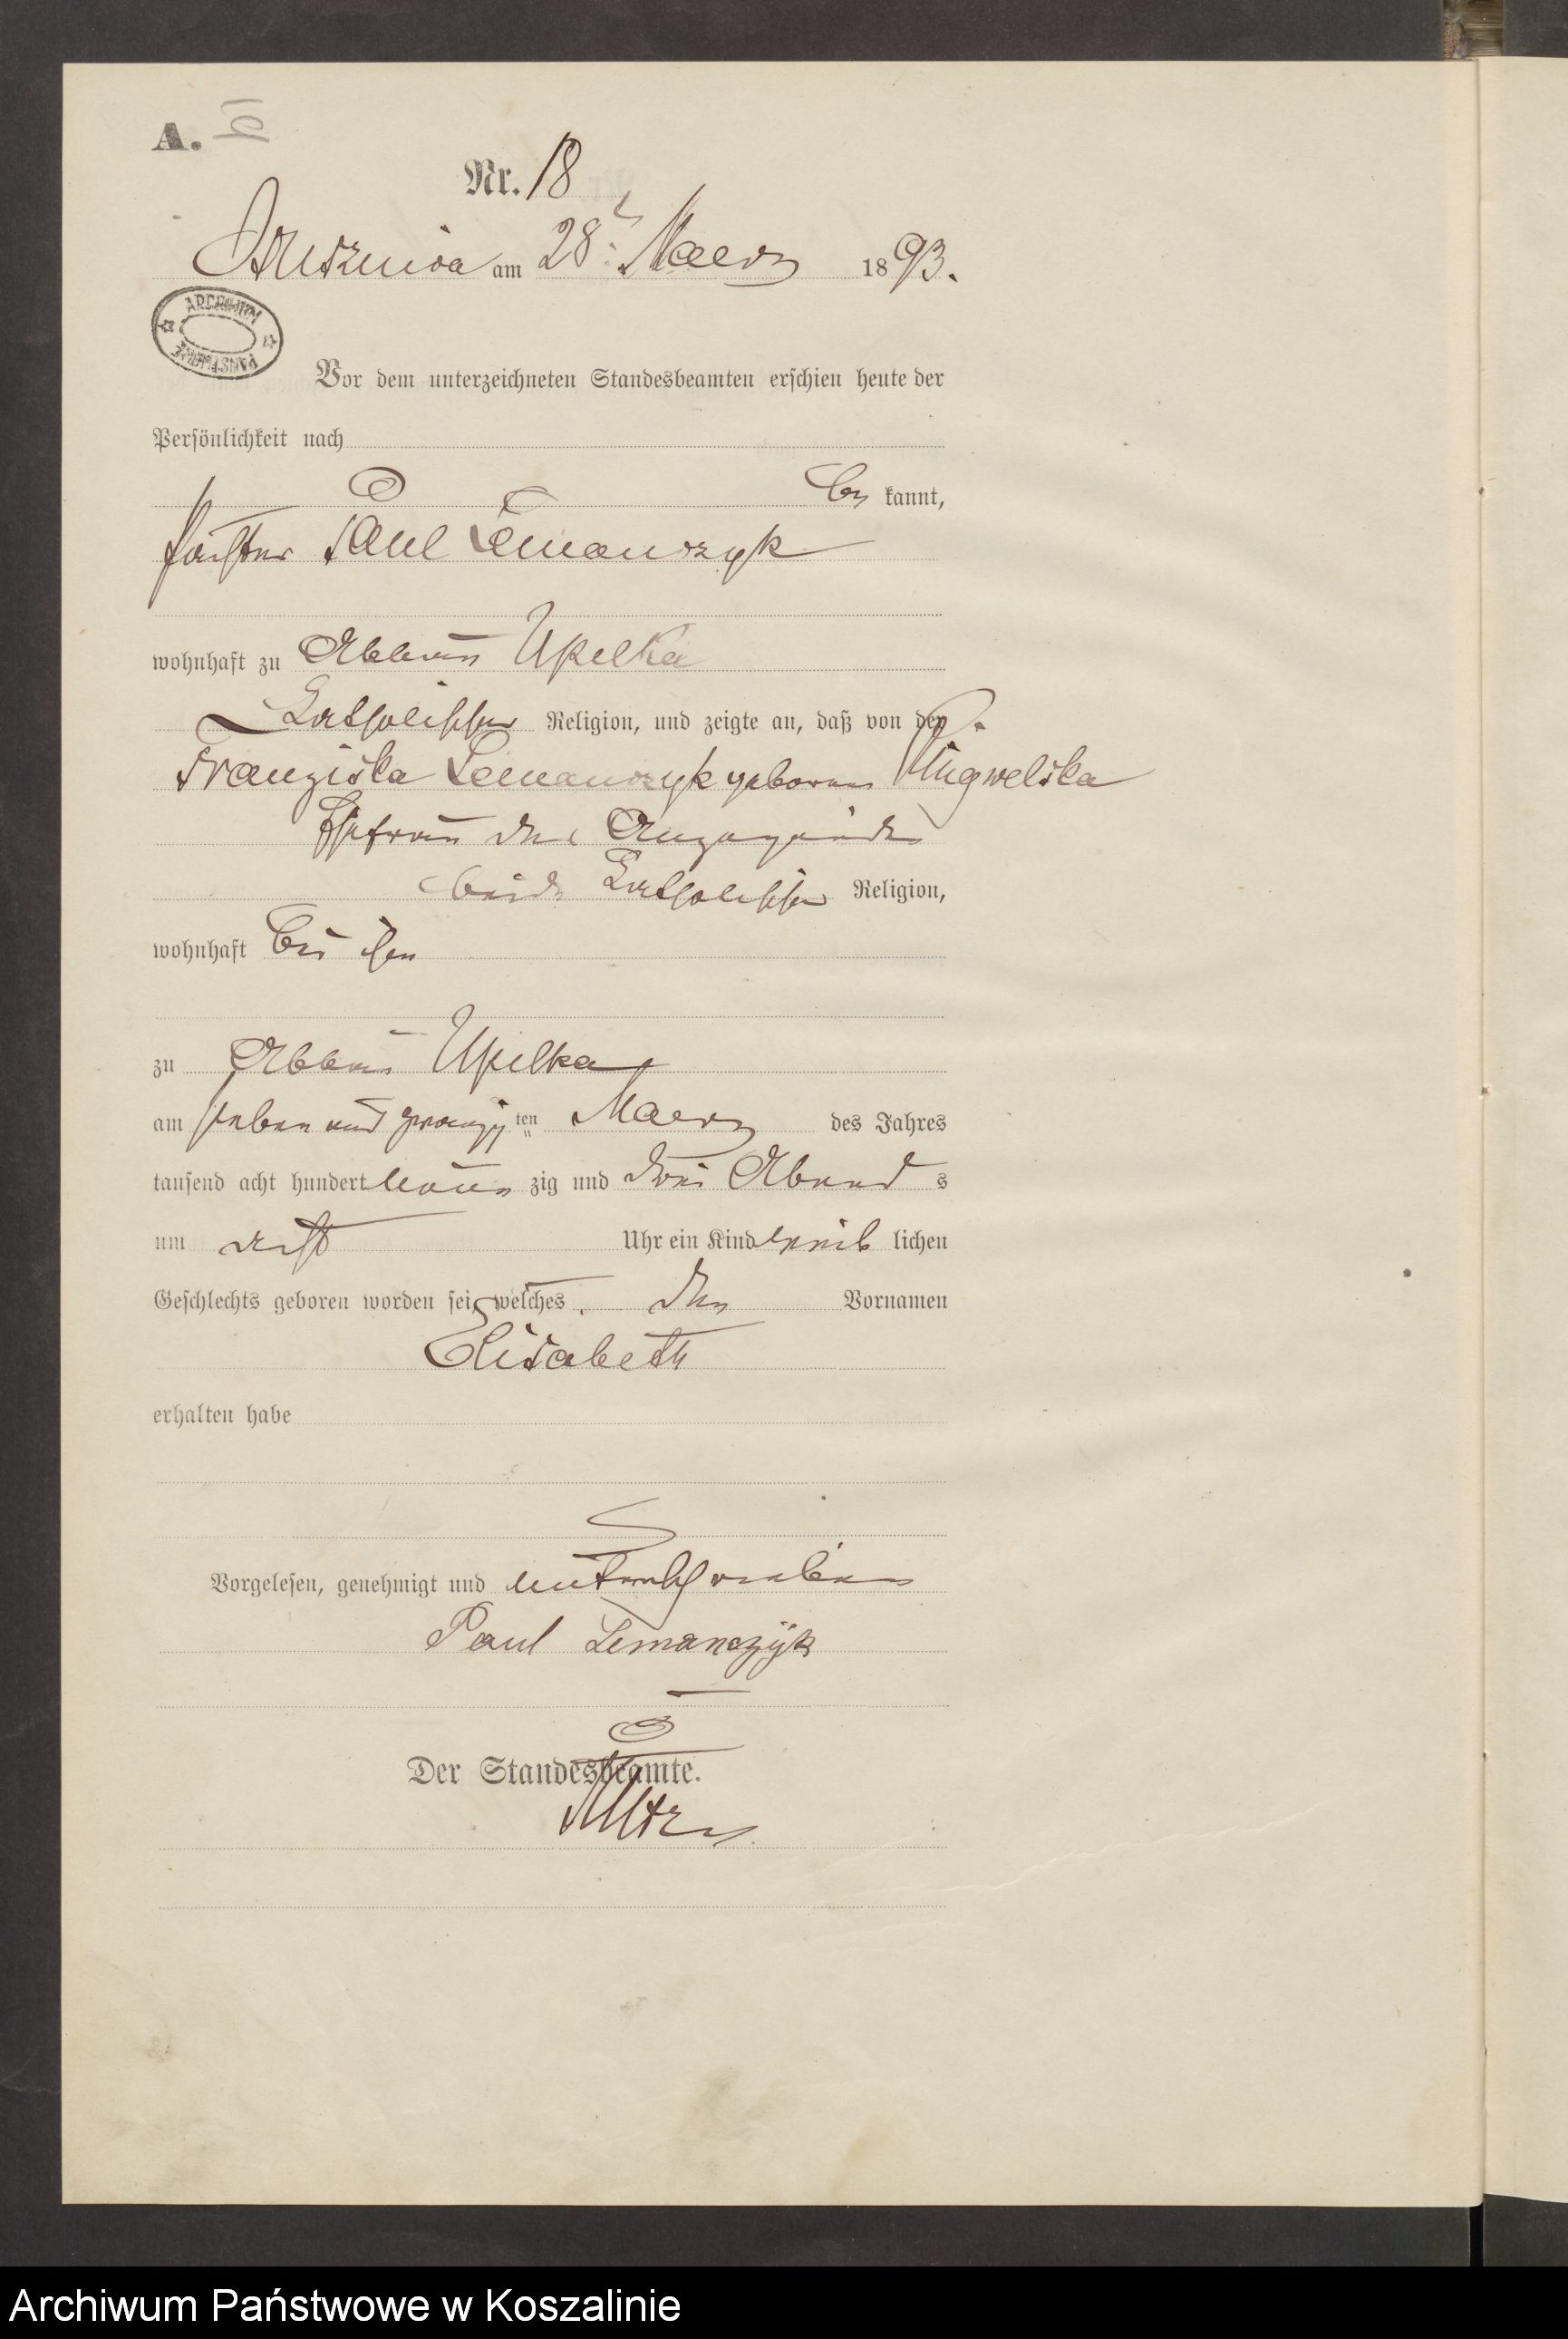 A.
Nr. 18
am 28t. Maerz 1893.
ARCHIWUM
PAŃSTWOWE
Vor dem unterzeichneten Standesbeamten erschien heute der
Persönlichkeit nach
be kannt,
Paul Lemanczyk
wohnhaft zu Abbau Upilka
katholischer Religion, und zeigte an, daß von der
Franziska Lemanczyk geborene
Ehefrau des Anzeigenden
beide katholischer Religion,
wohnhaft bei ihm
zu Abbau Upilka
am sieben und zwanzig ten Maerz des Jahres
tausend acht hundert neun zig und drei Abend s
um acht Uhr ein Kind weib lichen
Geschlechts geboren worden sei, welches den Vornamen
Elisabeth
erhalten habe
Vorgelesen, genehmigt und unterschrieben
Paul Lemanczyk
Der Standesbeamte.
Archiwum Państwowe w Koszalinie